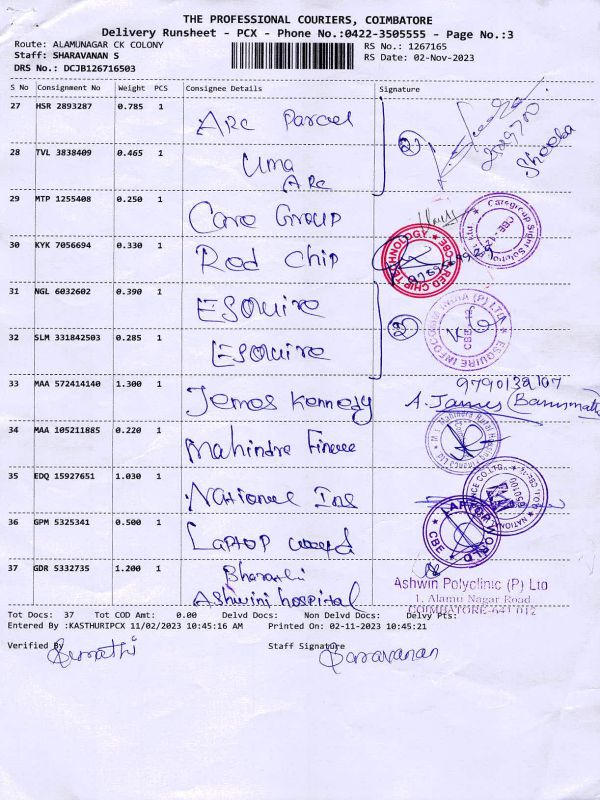 THE PROFESSIONAL COURIERS, COIMBATORE
Delivery Runsheet - PCX - Phone No.:0422-3505555 - Page No.:3
Route: ALAMUNAGAR CK COLONY
RS No.: 1267165
Staff: SHARAVANAN S
RS Date: 02-Nov-2023
DRS No.: DCJB126716503
S No Consignment No Weight PCS Consignee Details Signature
27 HSR 2893287 0.785 1 Arc Parcel
Sheeba
28 TVL 3838409 0.465 1 Uma
Arc
2
29 MTP 1255408 0.250 1 Care Group
30 KYK 7056694 0.330 1 Red Chip
RED CHIP TECHNOLOGY
31 NGL 6032602 0.390 1 ESquire
32 SLM 331842503 0.285 1 ESquire
2
33 MAA 572414140 1.300 1 James Kennedy
A. James
34 MAA 105211885 0.220 1 Mahindra Finance
35 EDQ 15927651 1.030 1 National Ins
36 GPM 5325341 0.500 1 Laptop world
LAPTOP WORLD CBE
37 GDR 5332735 1.200 1 Bharathi
Ashwini hospital
Ashwin Polyclinic (P) Ltd
1, Alamu Nagar Road
COIMBATORE-641 012
Tot Docs: 37 Tot COD Amt: 0.00 Delvd Docs: Non Delvd Docs: Delvy Pts:
Entered By :KASTHURIPCX 11/02/2023 10:45:16 AM Printed On: 02-11-2023 10:45:21
Verified By
Staff Signature
Sumathi
Saravanan